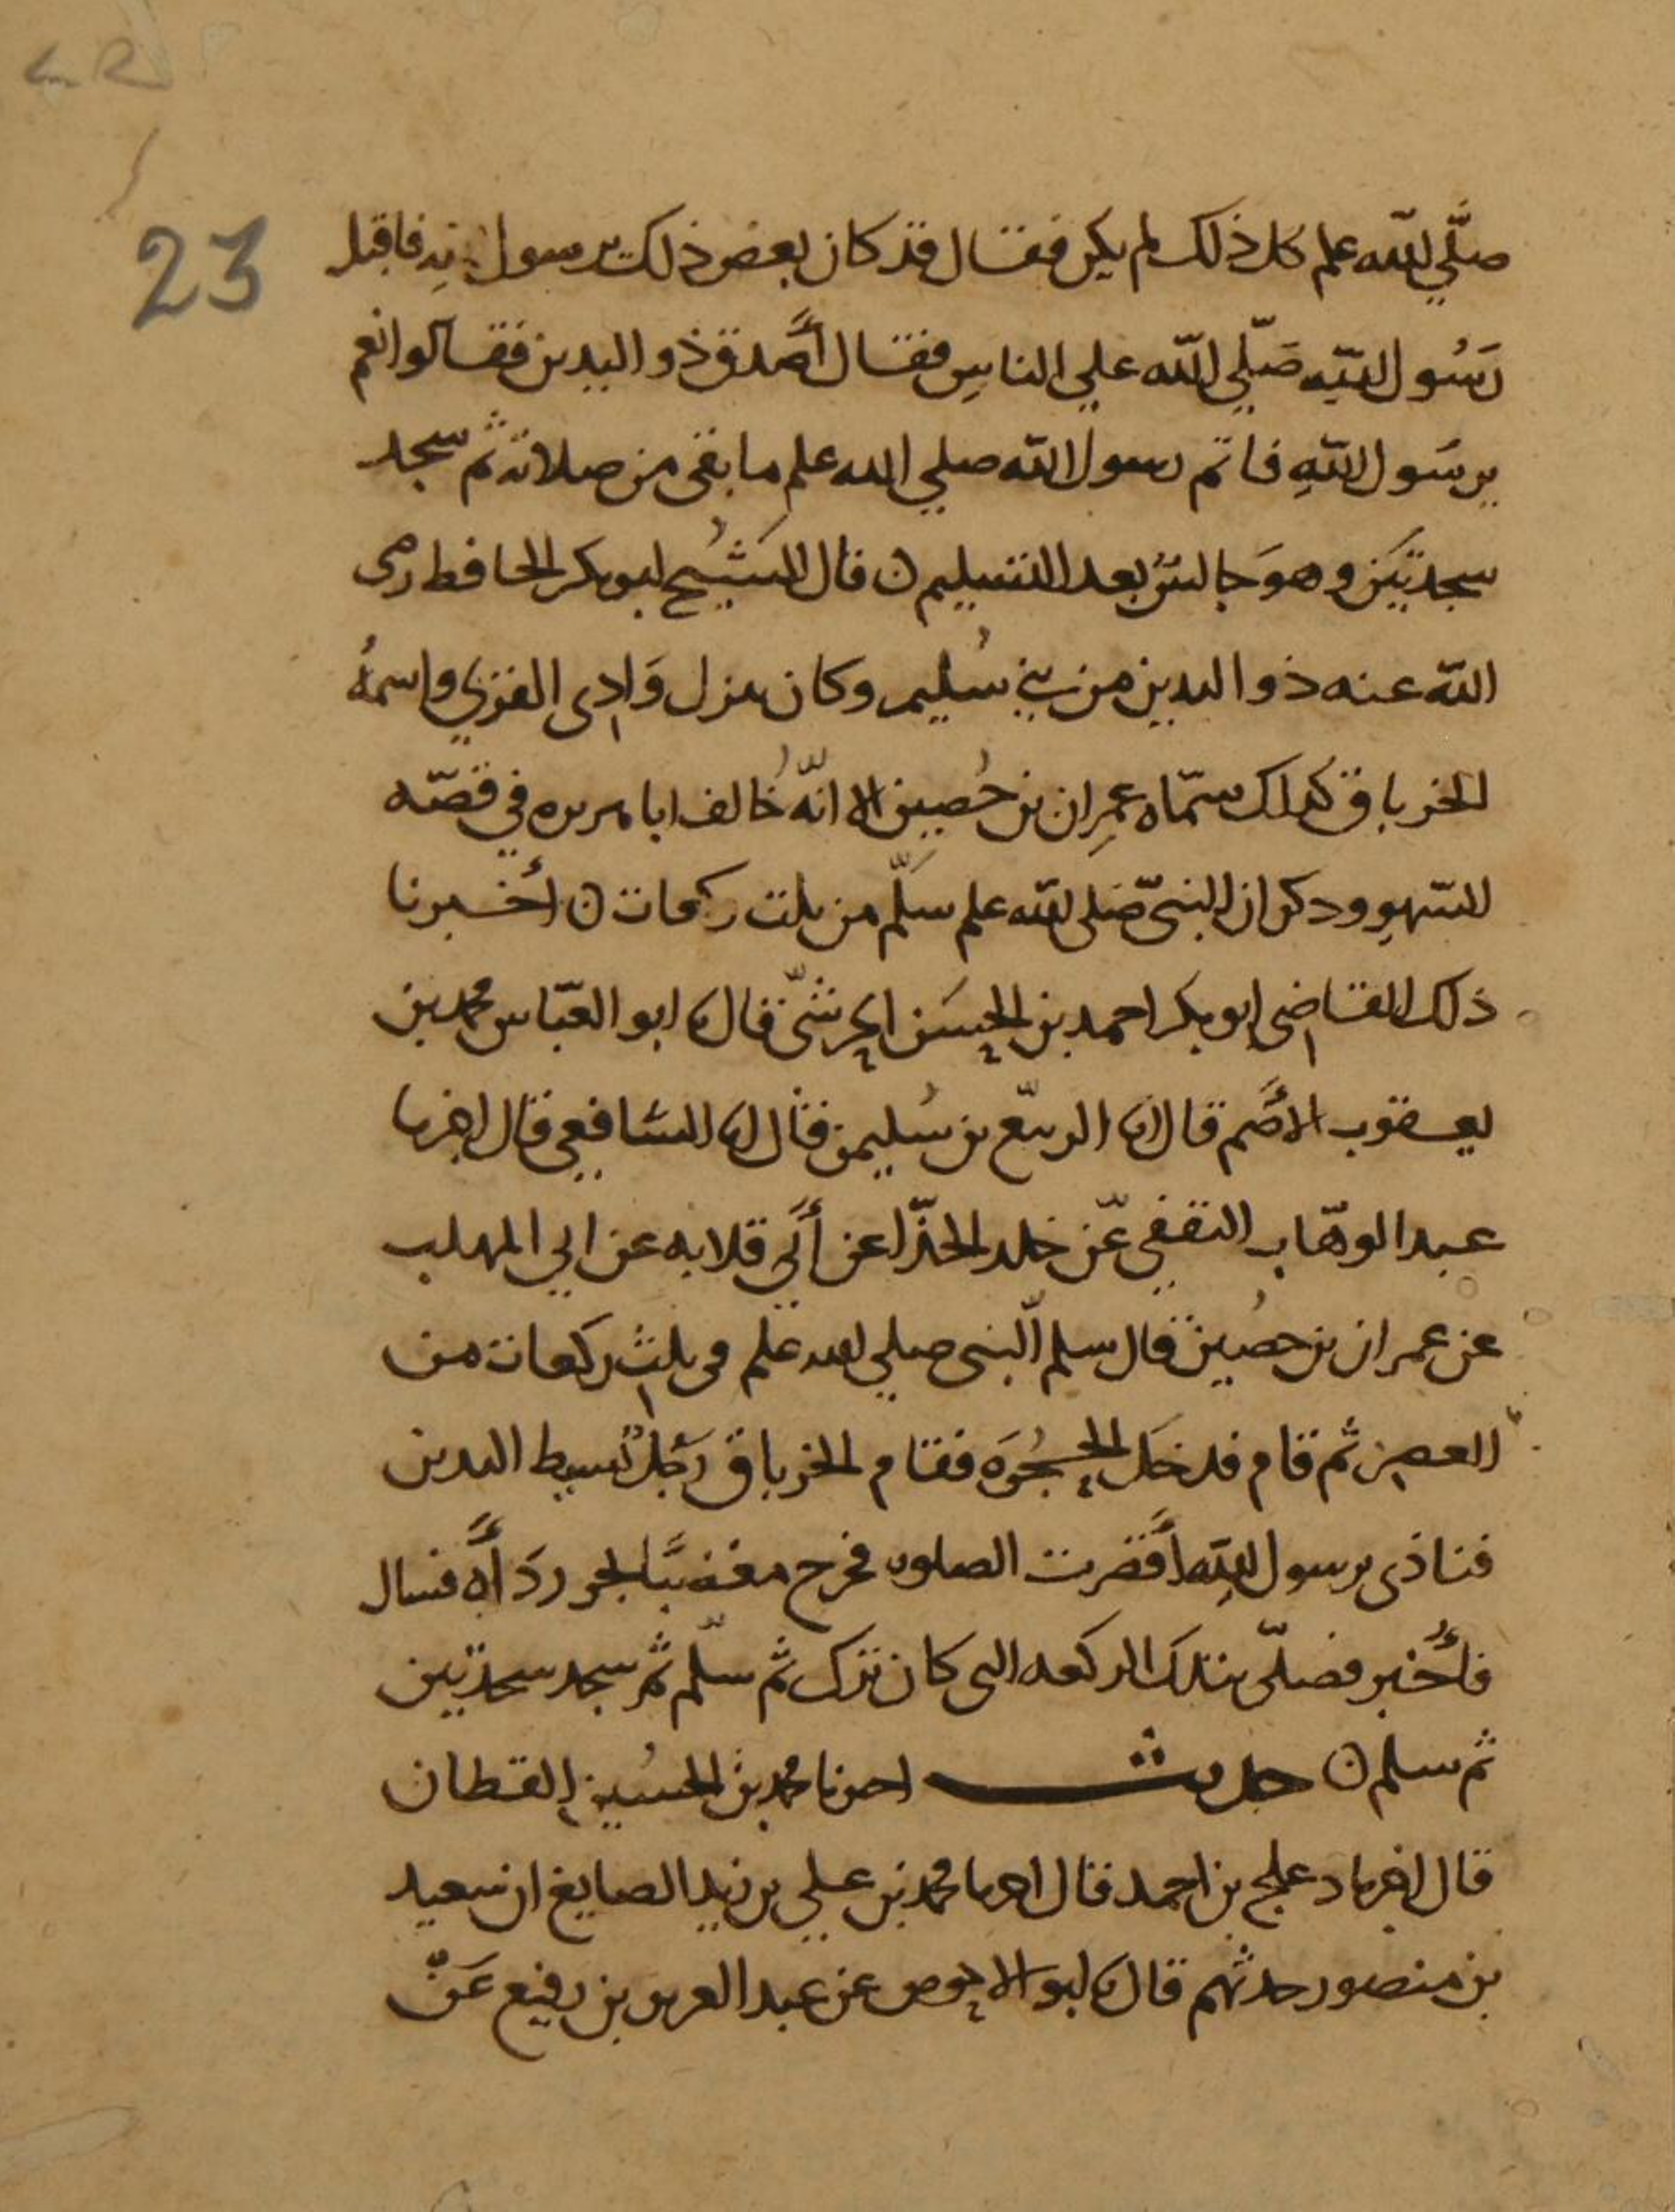 23
صلّي الله علم كل ذلك لم يكن فقال قد كان بعض ذلك يرسول الله فاقبل
رَسُول الله صَلّي الله علي الناسِ فقال أصَدق ذو اليدين فقالوا نعم
يرسُول اللهِ فاتم رسول الله صلي الله علم ما بقى من صلاته ثم سجد
سجدتَين وهوَ جالسٌ بعد التسليم ن قال الشَيْخ ابو بكر الحافظ رضى
الله عنه ذو اليدين من بني سُليم وكان ينزل وَادِى القرى واسمُه
الخرباق كذلك سمّاه عمِران بن حُصين الا انّه خالف ابا هريره في قصّه
السّهوِ وذكر ان النبىّ صَلى الله علم سَلّم من ثلث ركعات ن أخبرنا
ذلك القاضى ابو بكر احمد بن الحسَن الحرشىّ قال نا ابو العبّاس محمد بن
يعقوب الأصَم قال انا الربيّع بن سُليمن قال انا الشافعي قال اخبرنا
عبد الوهّاب الثقفى عّن خلد الحذّا عن أبي قلابه عن ابي المهلب
عن عمران بن حصُين قال سلم النّبى صلي الله علم فى ثلثِ ركعات من
العصرِ ثم قام فدخَل الحُجرَه فقام الخرباق رَجلٌ بسيط اليدين
فنادى يرسول اللهِ أقَصرت الصلوه فخرج مغضبًا يجر ردَأَه فسال
فأُخبر فصلّى تلكَ الركعه التى كان ترك ثم سلّم ثم سجد سجدتين
ثم سلم ن حديث اخبرنا محمد بن الحسُين القطان
قال اخبرنا دعلج بن احمد قال اخبرنا محمد بن علي بن زيد الصايغ ان سعيد
بن منصور حدثهم قال نا ابو الاحوص عن عبد العزيز بن رفيع عَنّ